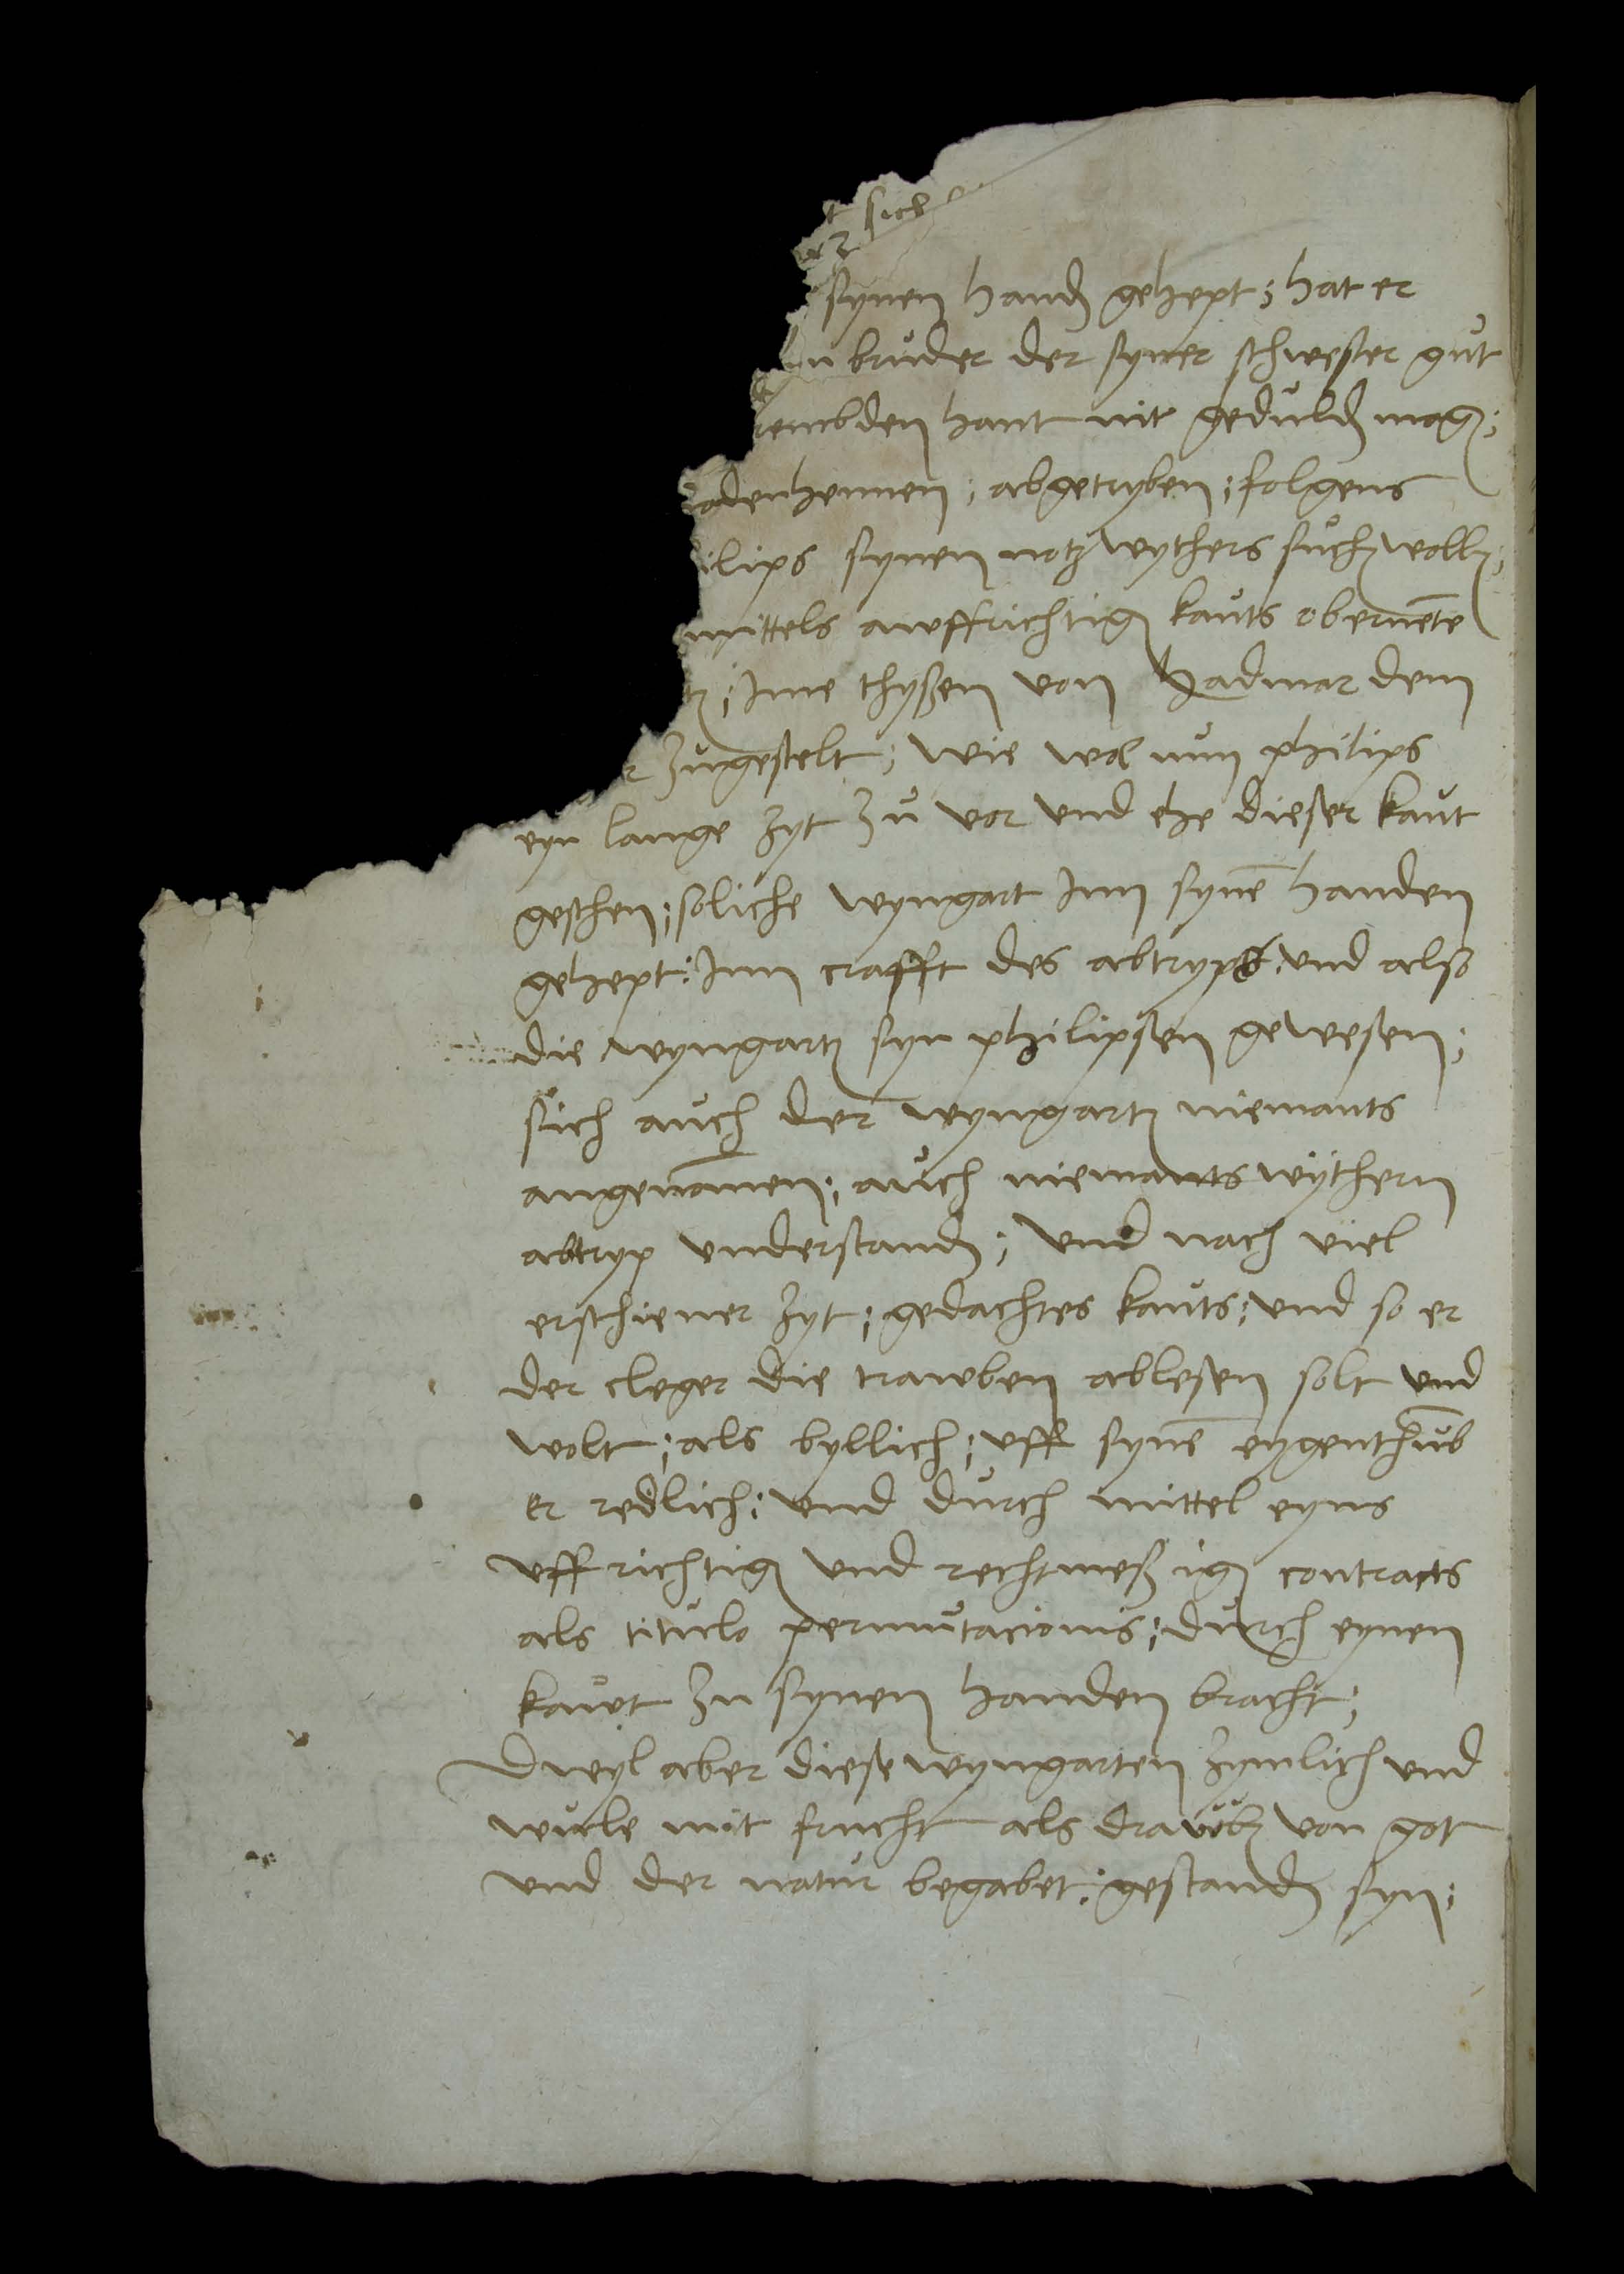 t sich
er
synen hand gehept; hat er
n bruder der syner schwester gut
rembden hant nit geduld mag;
adenhennen; abgetryben; folgens
ilips synen notz wythers such woll;
mittels auffrichtig kauts obernete
; Ime thyßen von Hadmar dem
r zugestelt; wie wol nun philips
eyn lange zyt zu vor und ehe dieser kaut
geschen; soliche wyngart Inn syne handen
gehept; Inn crafft des abtryps; und also
die wyngart syn philipsen gewesen;
sich auch der wyngart niemants
angenomen; auch niemants wythern
abtryp understand; und nach viel
erschiener zyt; gedachtes kauts; und so er
der cleger die trawben ablesen solt und
wolt; als byllich; uff syne eygenthub
er redlich; und durch mittel eyns
uffrichtig und rechtmeßig contracts
als titulo permutacionis; durch eynen
kawt zu synen handen bracht;
Dweyl aber diese wyngarten zymlich und
wule mit frucht als drawb von got
und der natur begabet; gestand syn;